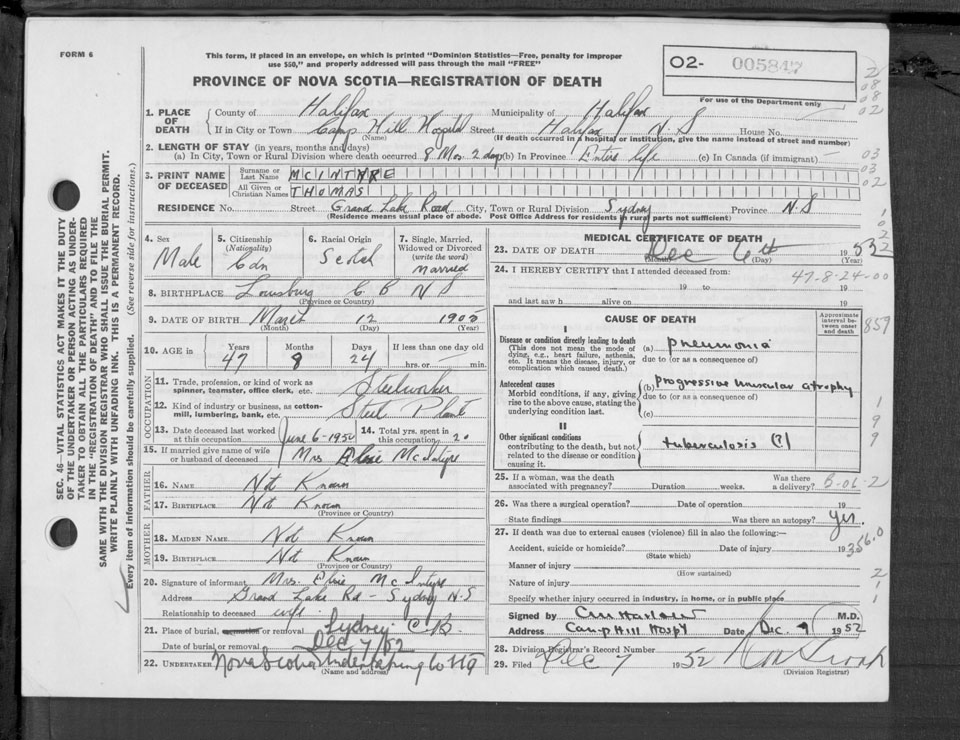 FORM 6
This form, if placed in an envelope, on which is printed "Dominion Statistics—Free, penalty for improper
use $50," and properly addressed will pass through the mail "FREE"
PROVINCE OF NOVA SCOTIA—REGISTRATION OF DEATH
O2- 005847
For use of the Department only
SEC. 46—VITAL STATISTICS ACT MAKES IT THE DUTY
OF THE UNDERTAKER OR PERSON ACTING AS UNDER-
TAKER TO OBTAIN ALL THE PARTICULARS REQUIRED
IN THE "REGISTRATION OF DEATH" AND TO FILE THE
SAME WITH THE DIVISION REGISTRAR WHO SHALL ISSUE THE BURIAL PERMIT.
WRITE PLAINLY WITH UNFADING INK. THIS IS A PERMANENT RECORD.
Every item of information should be carefully supplied. (See reverse side for instructions.)
1. PLACE OF DEATH County of Halifax Municipality of Halifax
If in City or Town Camp Hill Hospital Street Halifax N S House No.
(Name) (If death occurred in a hospital or institution, give the name instead of street and number)
2. LENGTH OF STAY (in years, months and days)
(a) In City, Town or Rural Division where death occurred 8 Mos. 2 days (b) In Province Entire life (c) In Canada (if immigrant)
3. PRINT NAME OF DECEASED Surname or Last Name MCINTYRE
All Given or Christian Names THOMAS
RESIDENCE No. Street Grand Lake Road City, Town or Rural Division Sydney Province N.S
(Residence means usual place of abode. Post Office Address for residents in rural parts not sufficient)
4. Sex Male
5. Citizenship (Nationality) Cdn
6. Racial Origin Scotch
7. Single, Married, Widowed or Divorced (write the word) married
8. BIRTHPLACE Louisburg C B N S
(Province or Country)
9. DATE OF BIRTH March 12 1905
(Month) (Day) (Year)
10. AGE in Years 47 Months 8 Days 24 If less than one day old hrs. or min.
OCCUPATION
11. Trade, profession, or kind of work as spinner, teamster, office clerk, etc. Steelworker
12. Kind of industry or business, as cotton-mill, lumbering, bank, etc. Steel Plant
13. Date deceased last worked at this occupation June 6-1950 14. Total yrs. spent in this occupation 20
15. If married give name of wife or husband of deceased Mrs Elsie McIntyre
FATHER
16. NAME Not Known
17. BIRTHPLACE Not Known
(Province or Country)
MOTHER
18. MAIDEN NAME Not Known
19. BIRTHPLACE Not Known
(Province or Country)
20. Signature of informant Mrs. Elsie McIntyre
Address Grand Lake Rd - Sydney N.S
Relationship to deceased wife
21. Place of burial, cremation or removal Sydney C.B.
Date of burial or removal Dec 7/52
22. UNDERTAKER Nova Scotia Undertaking Co
(Name and address)
MEDICAL CERTIFICATE OF DEATH
23. DATE OF DEATH Dec 6th 1952
(Month) (Day) (Year)
24. I HEREBY CERTIFY that I attended deceased from: 47-8-24-00
19 to 19
and last saw h alive on 19
CAUSE OF DEATH
Approximate interval between onset and death
I
Disease or condition directly leading to death (a) pneumonia
(This does not mean the mode of dying, e.g., heart failure, asthenia, etc. It means the disease, injury, or complication which caused death.)
due to (or as a consequence of)
Antecedent causes (b) Progressive muscular atrophy
Morbid conditions, if any, giving rise to the above cause, stating the underlying condition last.
due to (or as a consequence of)
(c)
II
Other significant conditions tuberculosis (?)
contributing to the death, but not related to the disease or condition causing it.
859
25. If a woman, was the death associated with pregnancy? Duration weeks. Was there a delivery?
26. Was there a surgical operation? Date of operation 19
State findings Was there an autopsy? yes.
27. If death was due to external causes (violence) fill in also the following:— 356.0
Accident, suicide or homicide? Date of injury 19
(State which)
Manner of injury
(How sustained)
Nature of injury
Specify whether injury occurred in industry, in home, or in public place
Signed by M.D.
Address Camp Hill Hospt Date Dec. 9 1952
28. Division Registrar's Record Number
29. Filed Dec 7 1952
(Division Registrar)